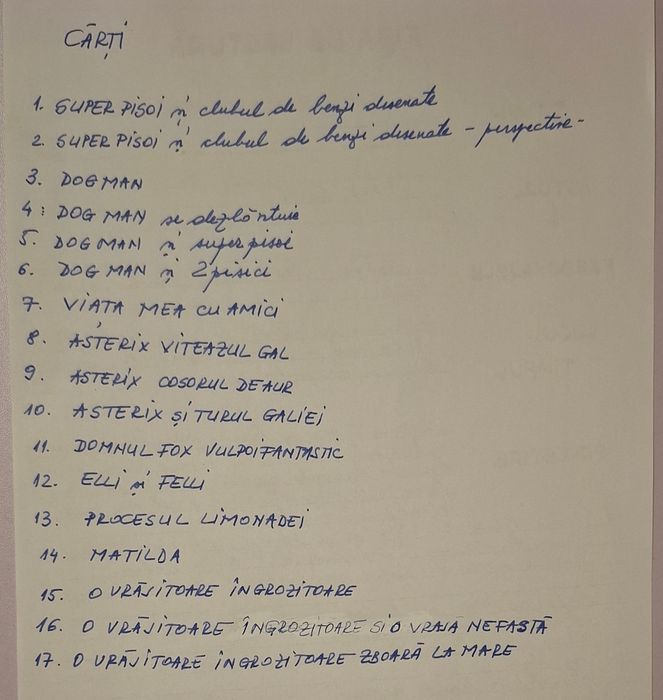 CĂRȚI
1. SUPER PISOI și clubul de benzi desenate
2. SUPER PISOI și clubul de benzi desenate - perspective -
3. DOG MAN
4: DOG MAN se dezlănțuie
5. DOG MAN și super pisoi
6. DOG MAN și 2 pisici
7. VIAȚA MEA CU AMICI
8. ASTERIX VITEAZUL GAL
9. ASTERIX COSORUL DE AUR
10. ASTERIX ȘI TURUL GALIEI
11. DOMNUL FOX VULPOI FANTASTIC
12. ELLI și FELLI
13. PROCESUL LIMONADEI
14. MATILDA
15. O VRĂJITOARE ÎNGROZITOARE
16. O VRĂJITOARE ÎNGROZITOARE SI O VRAJĂ NEFASTĂ
17. O VRĂJITOARE ÎNGROZITOARE ZBOARĂ LA MARE